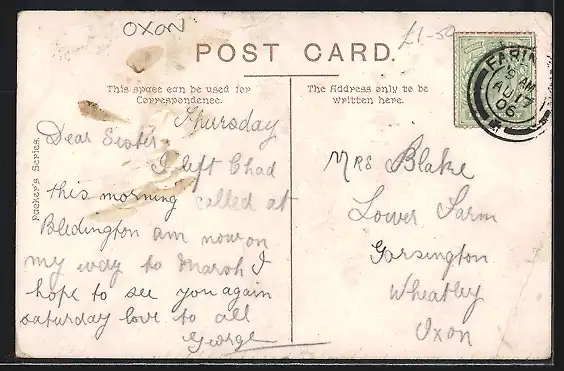 OXON
£1-50
POST CARD.
This space can be used for
Correspondence.
The Address only to be
written here.
Packer's Series.
FARIN
9 AM
AU 17
06
Thursday
Dear Sister
I left Chad
this morning called at
Bledington am now on
my way to Marsh I
hope to see you again
saturday love to all
George
Mrs Blake
Lower Farm
Garsington
Wheatley
Oxon